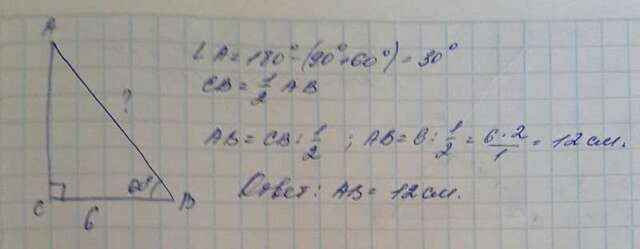 A
∠A = 180° - (90° + 60°) = 30°
CB = 1/2 AB
?
AB = CB : 1/2 ; AB = 6 : 1/2 = 6·2/1 = 12 см.
60°
C
B
6
Ответ: AB = 12 см.